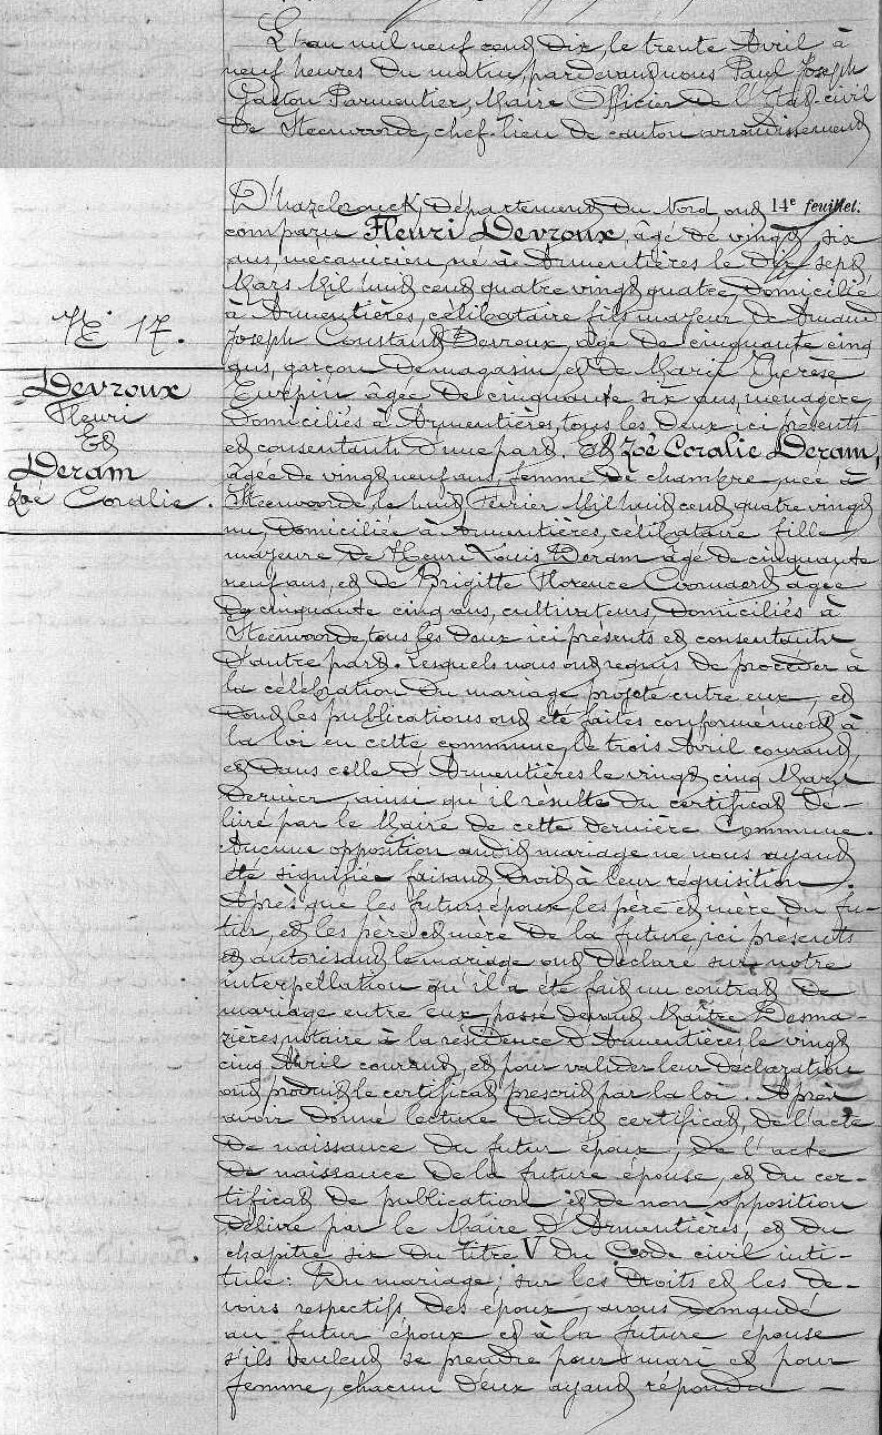 L'an mil neuf cent dix, le trente Avril à
neuf heures du matin, pardevant nous Paul Joseph
Gaston Parmentier, Maire Officier de l'Etat-civil
de Steenvoorde, chef-lieu de canton arrondissement
D'hazebrouck, Département du Nord ont 14e feuillet.
comparu Henri Devroux, âgé de vingt six
ans, mécanicien, né à Armentières le dix sept
Mars Mil huit cent quatre vingt quatre, Domicilié
à Armentières, célibataire fils majeur de Amand
Joseph Constant Devroux, âgé de cinquante cinq
ans, garçon de magasin, et de Marie Thérèse
âgée de cinquante six ans, ménagère,
domiciliés à Armentières, tous les deux ici présents
et consentants d'une part. Et Zoé Coralie Deram,
âgée de vingt neuf ans, femme de chambre, née à
Steenvoorde, le huit Février Mil huit cent quatre vingt
un, Domiciliée à Armentières, célibataire fille
majeure de Henri Louis Deram âgé de cinquante
neuf ans, et de Brigitte Florence Coornaert âgée
de cinquante cinq ans, cultivateurs, domiciliés à
Steenvoorde, tous les deux ici présents et consentants
D'autre part. Lesquels nous ont requis de procéder à
la célébration du mariage projeté entre eux, et
dont les publications ont été faites conformément à
la loi en cette commune, le trois Avril courant,
et dans celle d'Armentières le vingt cinq Mars
dernier, ainsi qu'il résulte du certificat dé-
livré par le Maire de cette dernière Commune.
Aucune opposition audit mariage ne nous ayant
été signifiée faisant droit à leur réquisition.
Après que les futurs époux, les père et mère du fu-
tur, et les père et mère de la future, ici présents
et autorisant le mariage ont déclaré sur notre
interpellation qu'il a été fait un contrat de
mariage entre eux passé devant Maître Desma-
zières notaire à la résidence d'Armentières, le vingt
cinq Avril courant, et pour valider leur déclaration
ont produit le certificat prescrit par la loi. Après
avoir donné lecture dudit certificat, de l'acte
de naissance du futur époux, de l'acte
de naissance de la future épouse, et du cer-
tificat de publication et de non opposition
délivré par le Maire d'Armentières, et du
chapitre six du titre V du Code civil inti-
tulé: Du mariage; sur les droits et les de-
voirs respectifs des époux, avons demandé
au futur époux et à la future épouse
s'ils veulent se prendre pour mari et pour
femme, chacun d'eux ayant répondu —
N° 17.
Devroux
Henri
Et
Deram
Zoé Coralie.